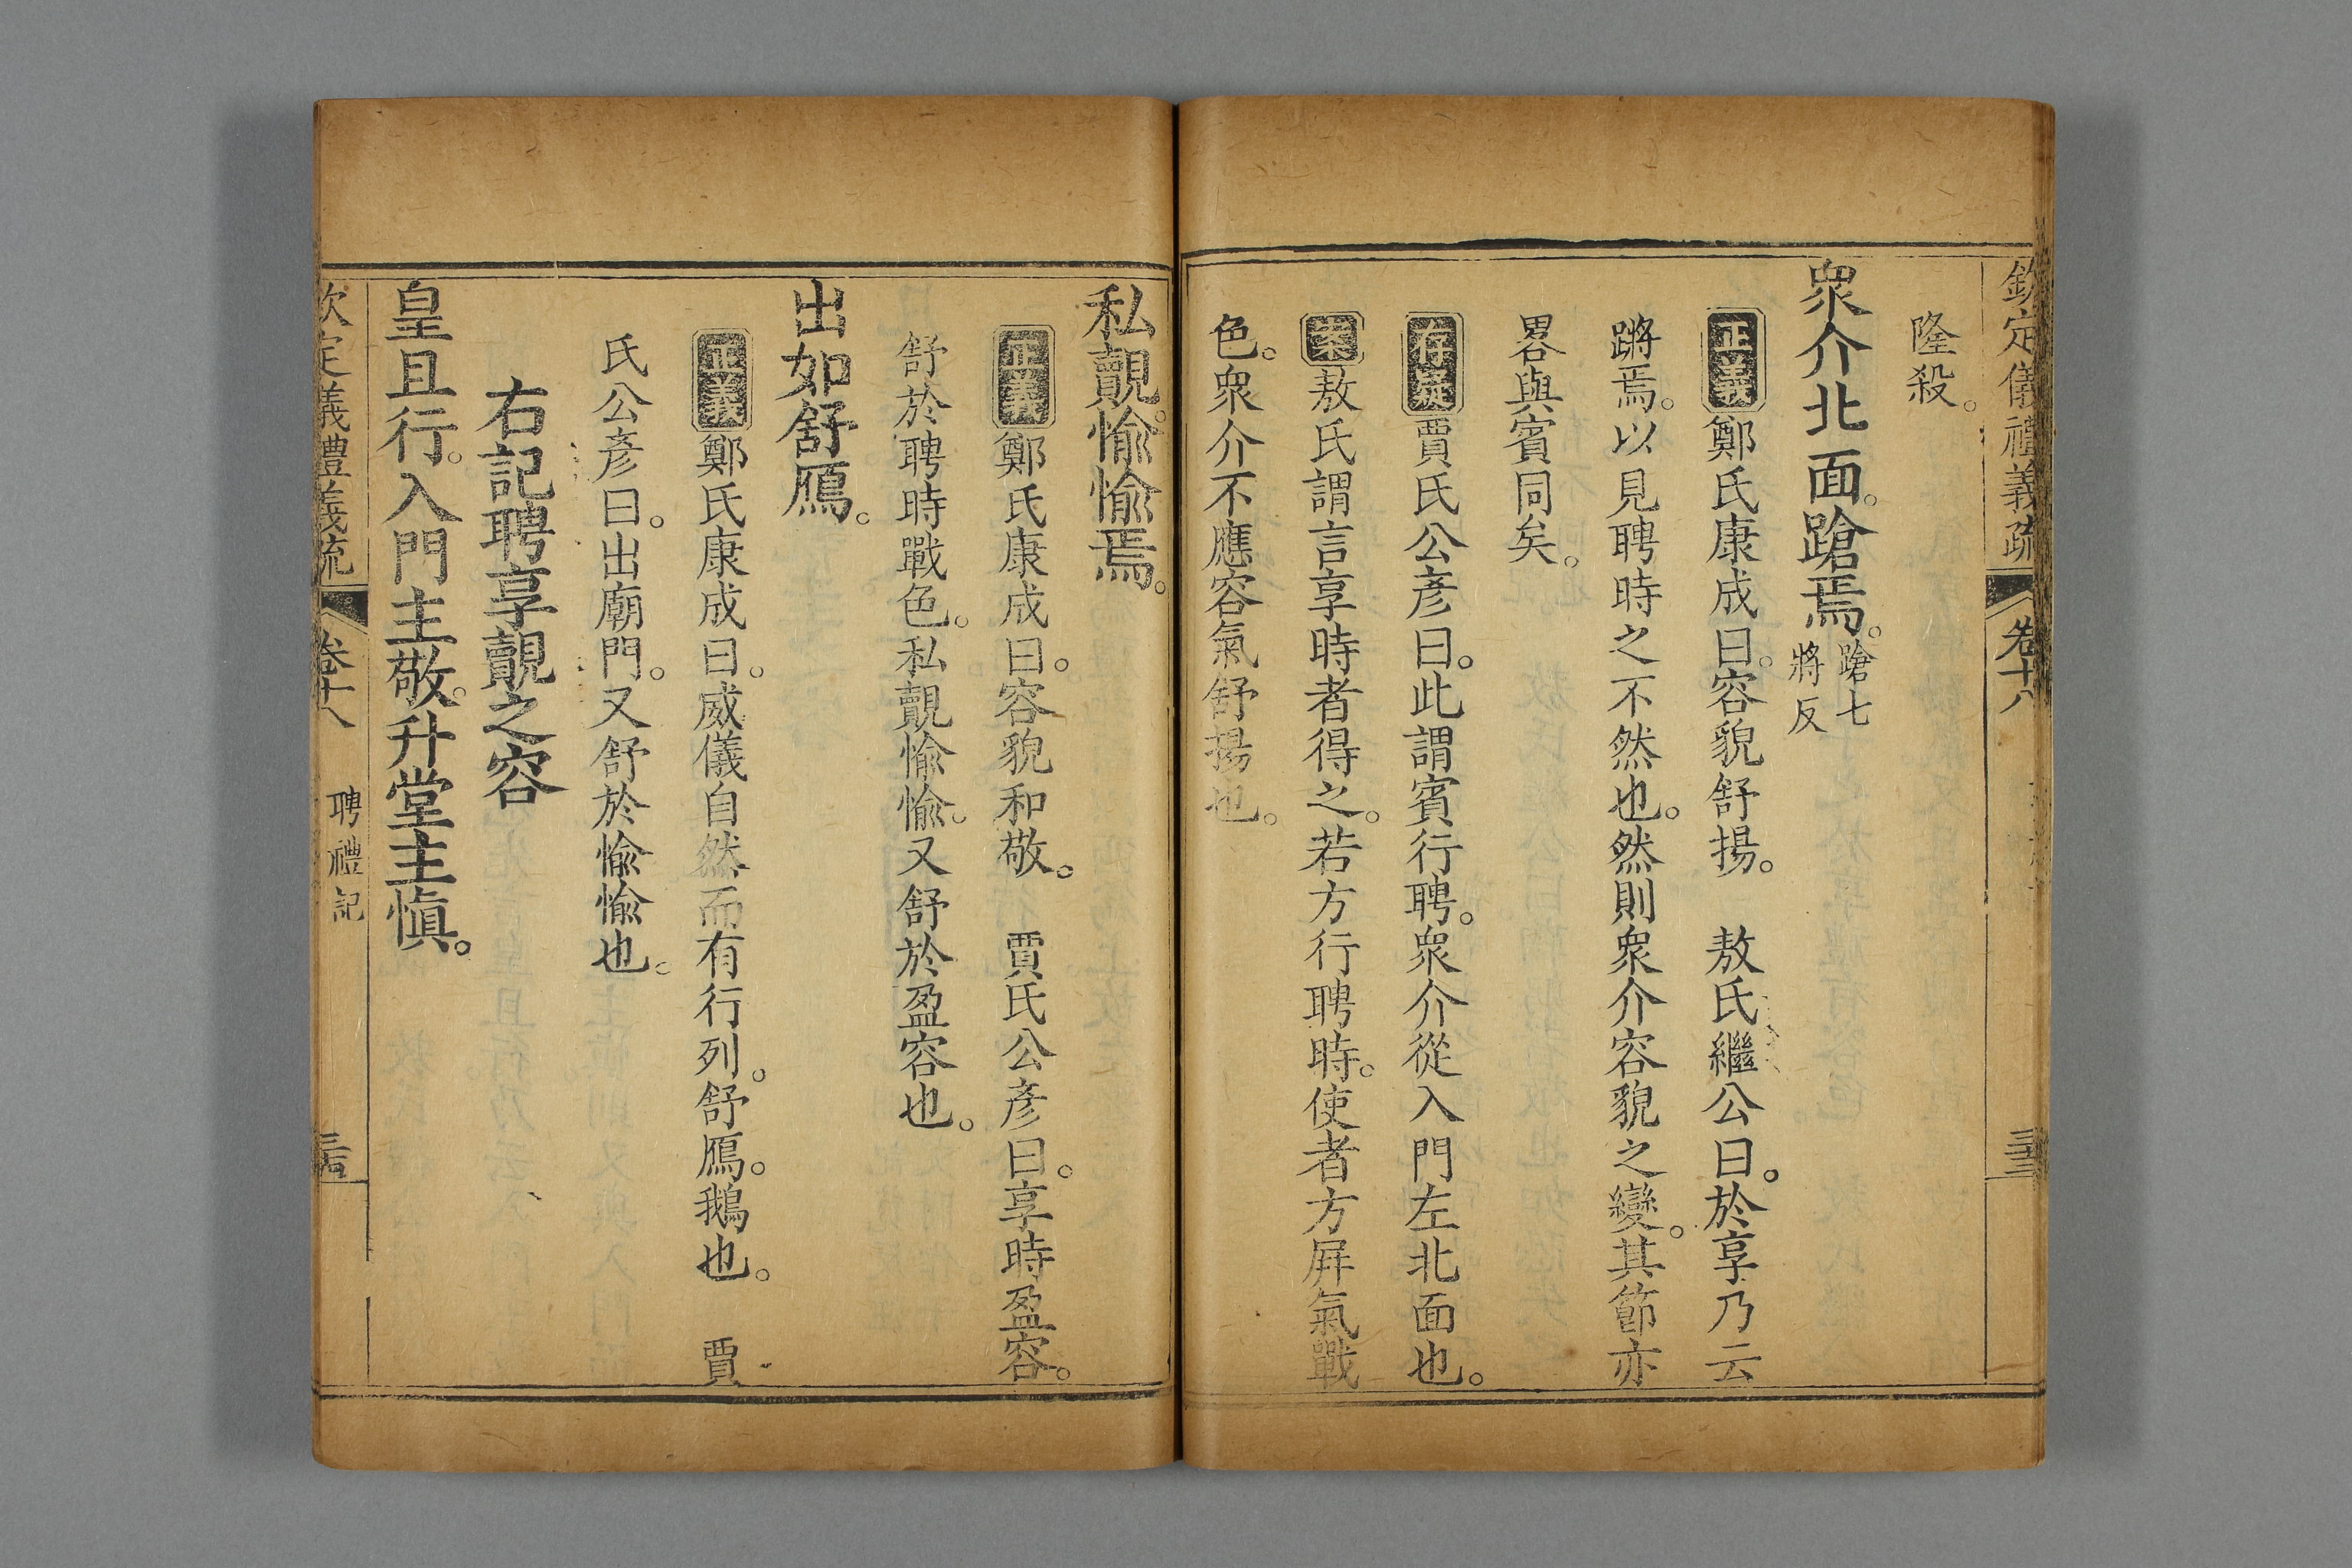 欽定儀禮義疏 卷十八
隆殺。
衆介北面。蹌焉。蹌七將反
正義鄭氏康成曰。容貌舒揚。 敖氏繼公曰。於享乃云
蹡焉。以見聘時之不然也。然則衆介容貌之變。其節亦
畧與賓同矣。
存疑賈氏公彥曰。此謂賓行聘。衆介從入門左北面也。
案敖氏謂言享時者得之。若方行聘時。使者方屛氣戰
色。衆介不應容氣舒揚也。
私覿。愉愉焉。
正義鄭氏康成曰。容貌和敬。 賈氏公彥曰。享時盈容。
舒於聘時戰色。私覿愉愉。又舒於盈容也。
出如舒鴈。
正義鄭氏康成曰。威儀自然而有行列。舒鴈。鵝也。 賈
氏公彥曰。出廟門。又舒於愉愉也。
右記聘享覿之容
皇且行。入門主敬。升堂主愼。
欽定儀禮義疏 卷十八 聘禮記